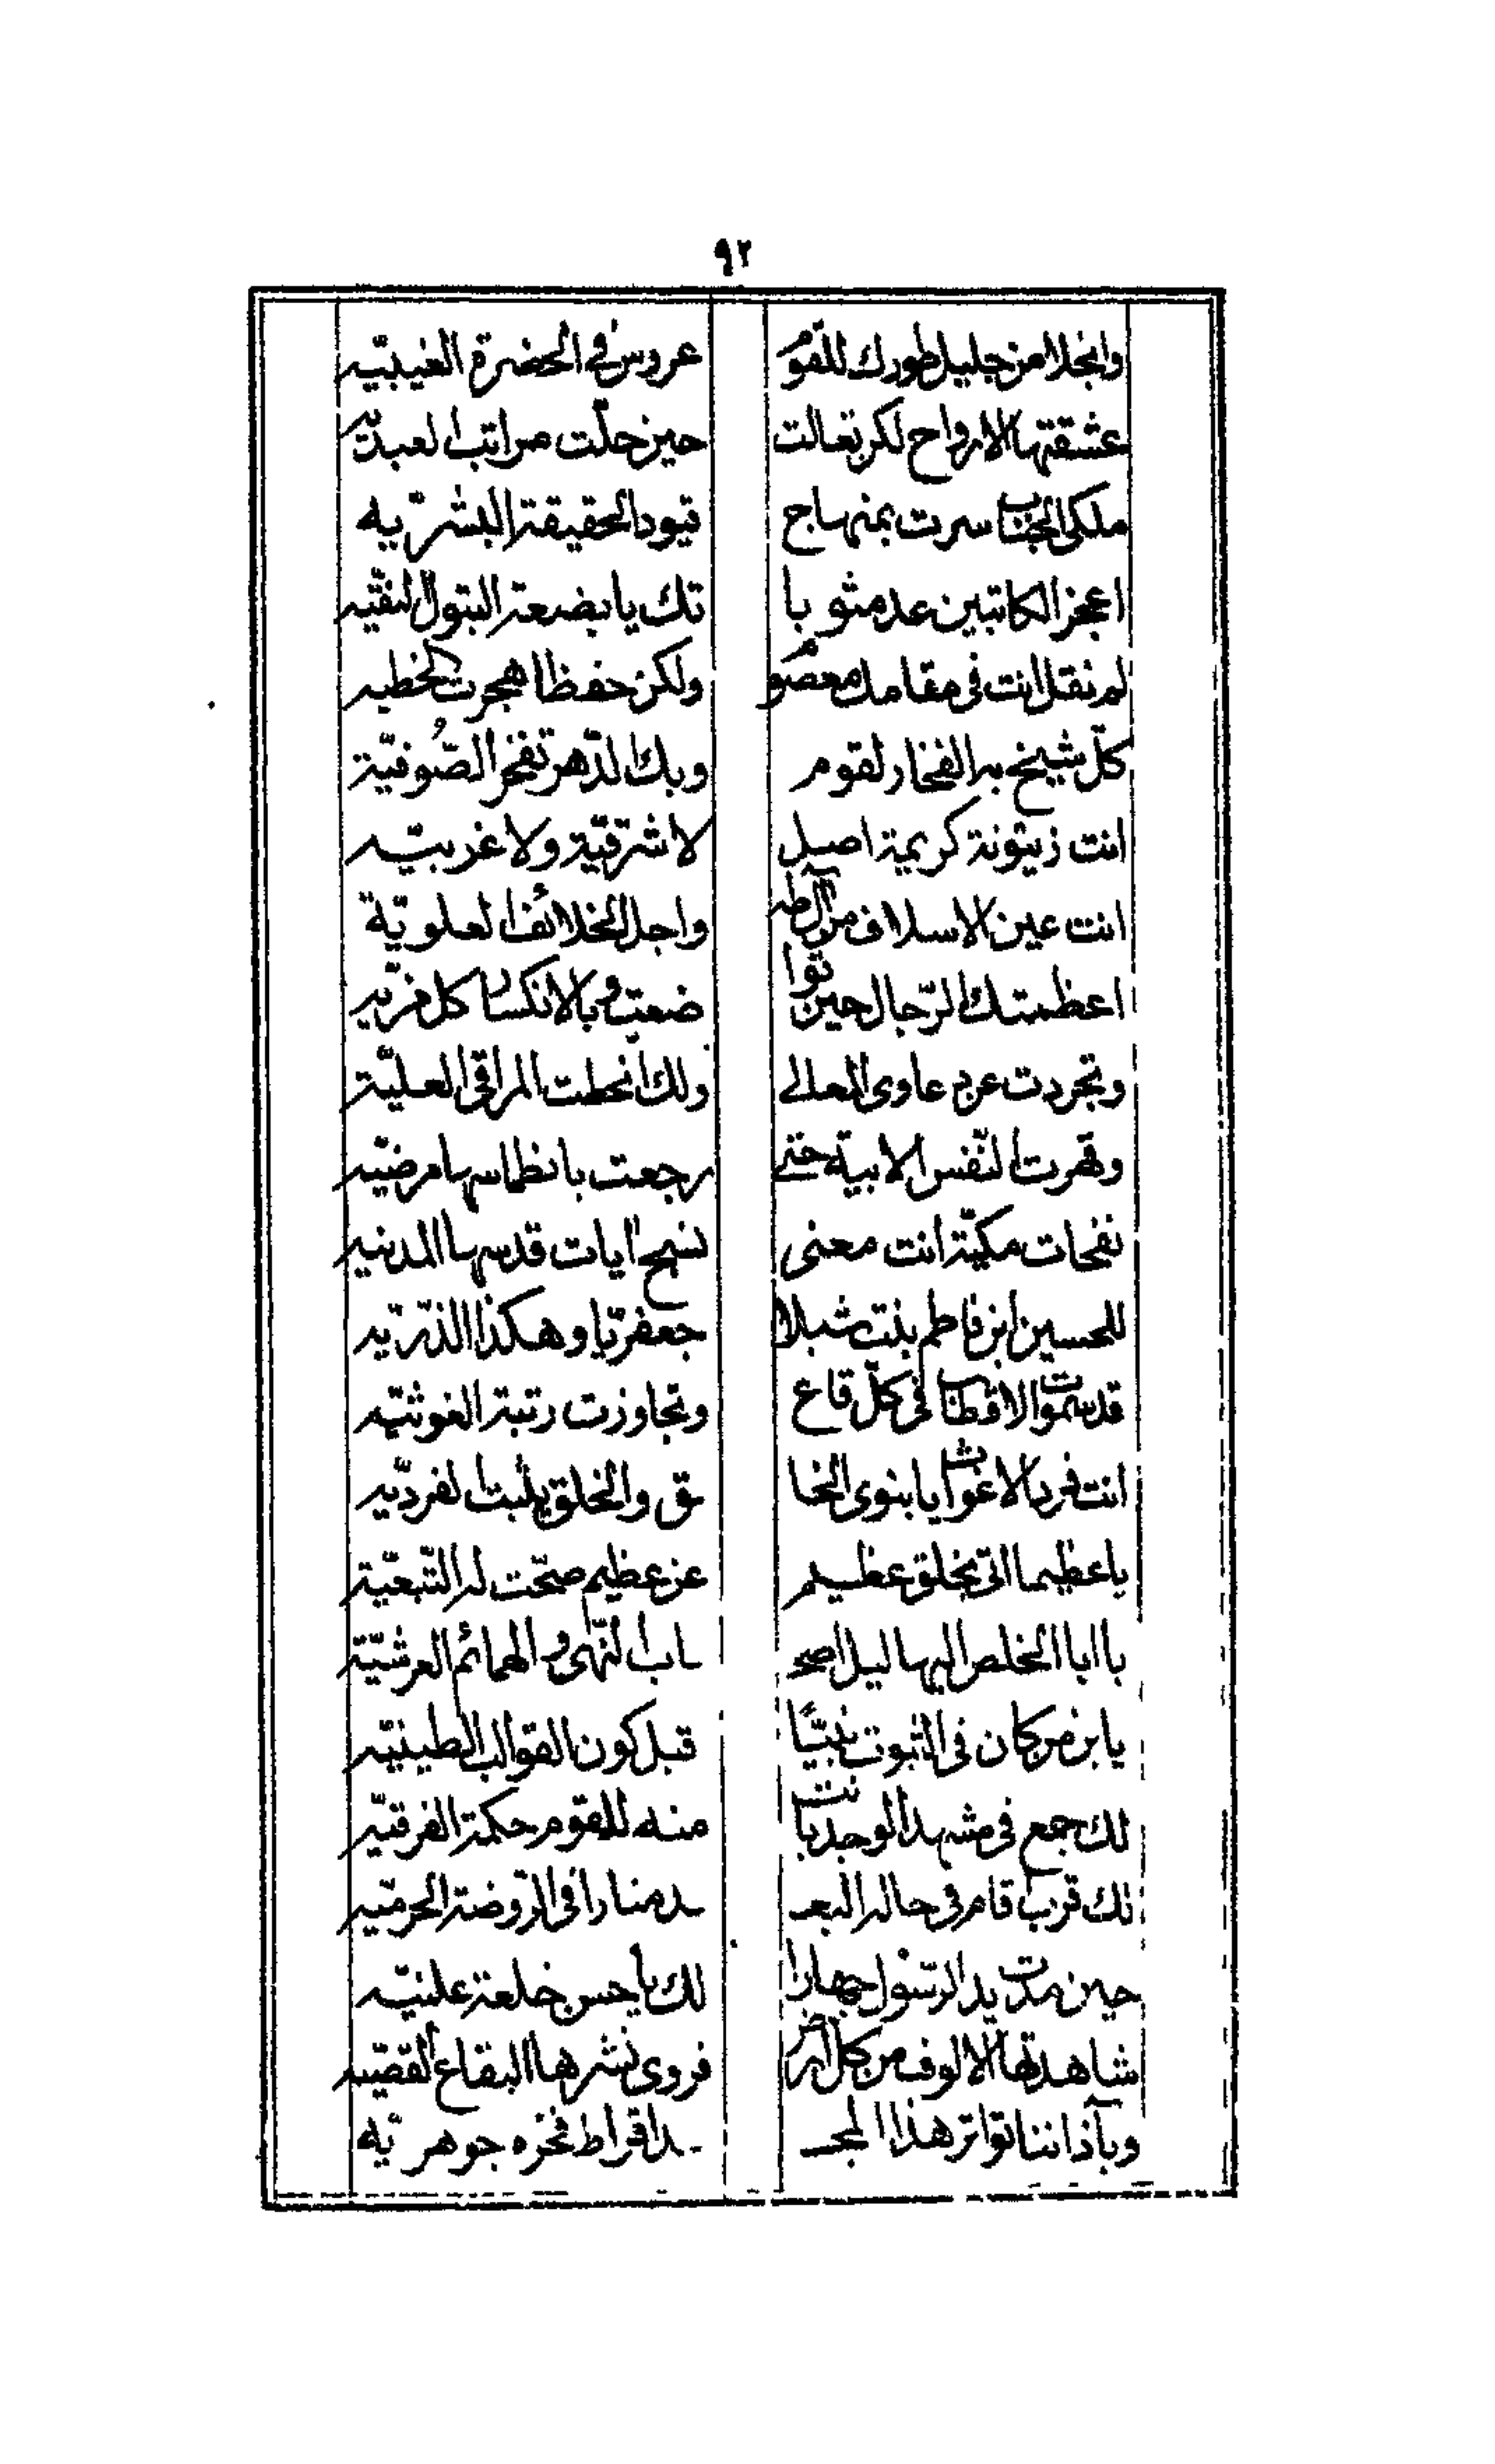 ٩٢
وانجلا من جليل طورك للقوم عروس في الحضرة الغيبيّه
عشقتها الارواح لكن تعالت حين حلّت مراتب العبديّه
ملكى الجناب سرت بمنهاج قيود الحقيقة البشريّه
اعجز الكاتبين عد مثوبا تك يا بضعة البتول النقيّه
لم نقل انت فى مقامك معصوم ولكن حفظا هجرت الخطيه
كلّ شيخ به الفخار لقوم وبك الدّهر تفخر الصُّوفيّة
انت زيتونة كريمة اصل لا شرقيّة ولا غربيّه
انت عين الاسلاف من آل طه واجل الخلائف العلويّة
اعظمتك الرّجال حين توا ضعت وبالانكسار كل مزيّه
وتجردت عن دعاوى المعالى ولك انحطت المراقى العليّة
وقهرت النّفس الابية حتى رجعت بانطماسها مرضيّه
نفحات مكيّة انت معنى نسج آيات قدسها المدنيه
للحسين ابن فاطم بنت شبلا جعفريّا وهكذا الذّرّيّه
قد سموت الاقطاب فى كلّ قاع وتجاوزت رتبة الغوثيّه
انت فرد الاغواث يا بنوى الخا ق والخلق يثبت الفرديّه
يا عظيما اتى بخلق عظيم عن عظيم صحّت له التّبعيّة
يا ابا الخلص البهاليل اصحـ ـاب النّهى والهمائم العرشيّة
يا بن من كان فى الثبوت نبيّا قبل كون القوالب الطينيّه
لك جمع فى مشهد الوجد بانت منه للقوم حكمة الفرقيّه
لك قرب قام فى حالة البعـ ـد منارا فى الرّوضة الحرميّه
حين مدت يد الرّسول جهارا لك يا حسن خلعة علنيّه
شاهدتها الالوف من كل ارض فروى نشرها البقاع القصيّه
وبآذاننا تواتر هذا المجـ ـد اقراط فخره جوهريّه